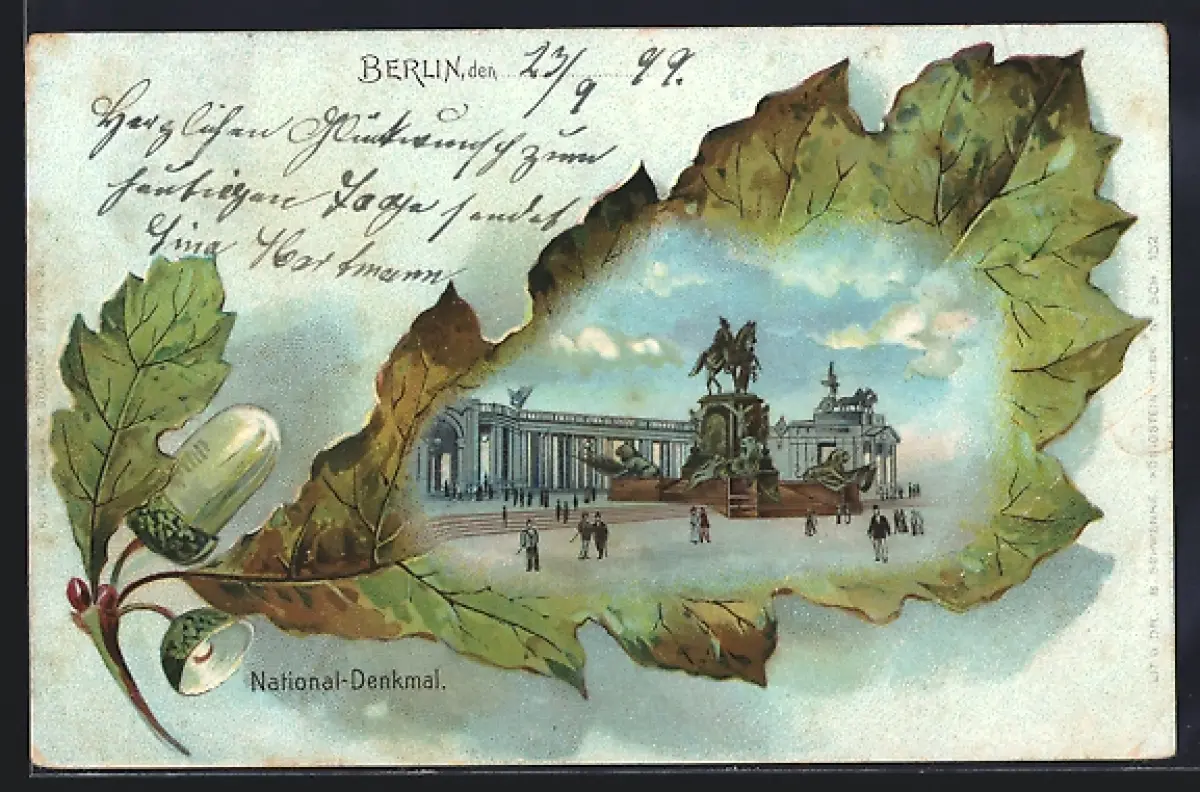 BERLIN, den 23/9 99.
Herzlichen Glückwunsch zum
heutigen Tage sendet
Lina Hartmann
National-Denkmal.